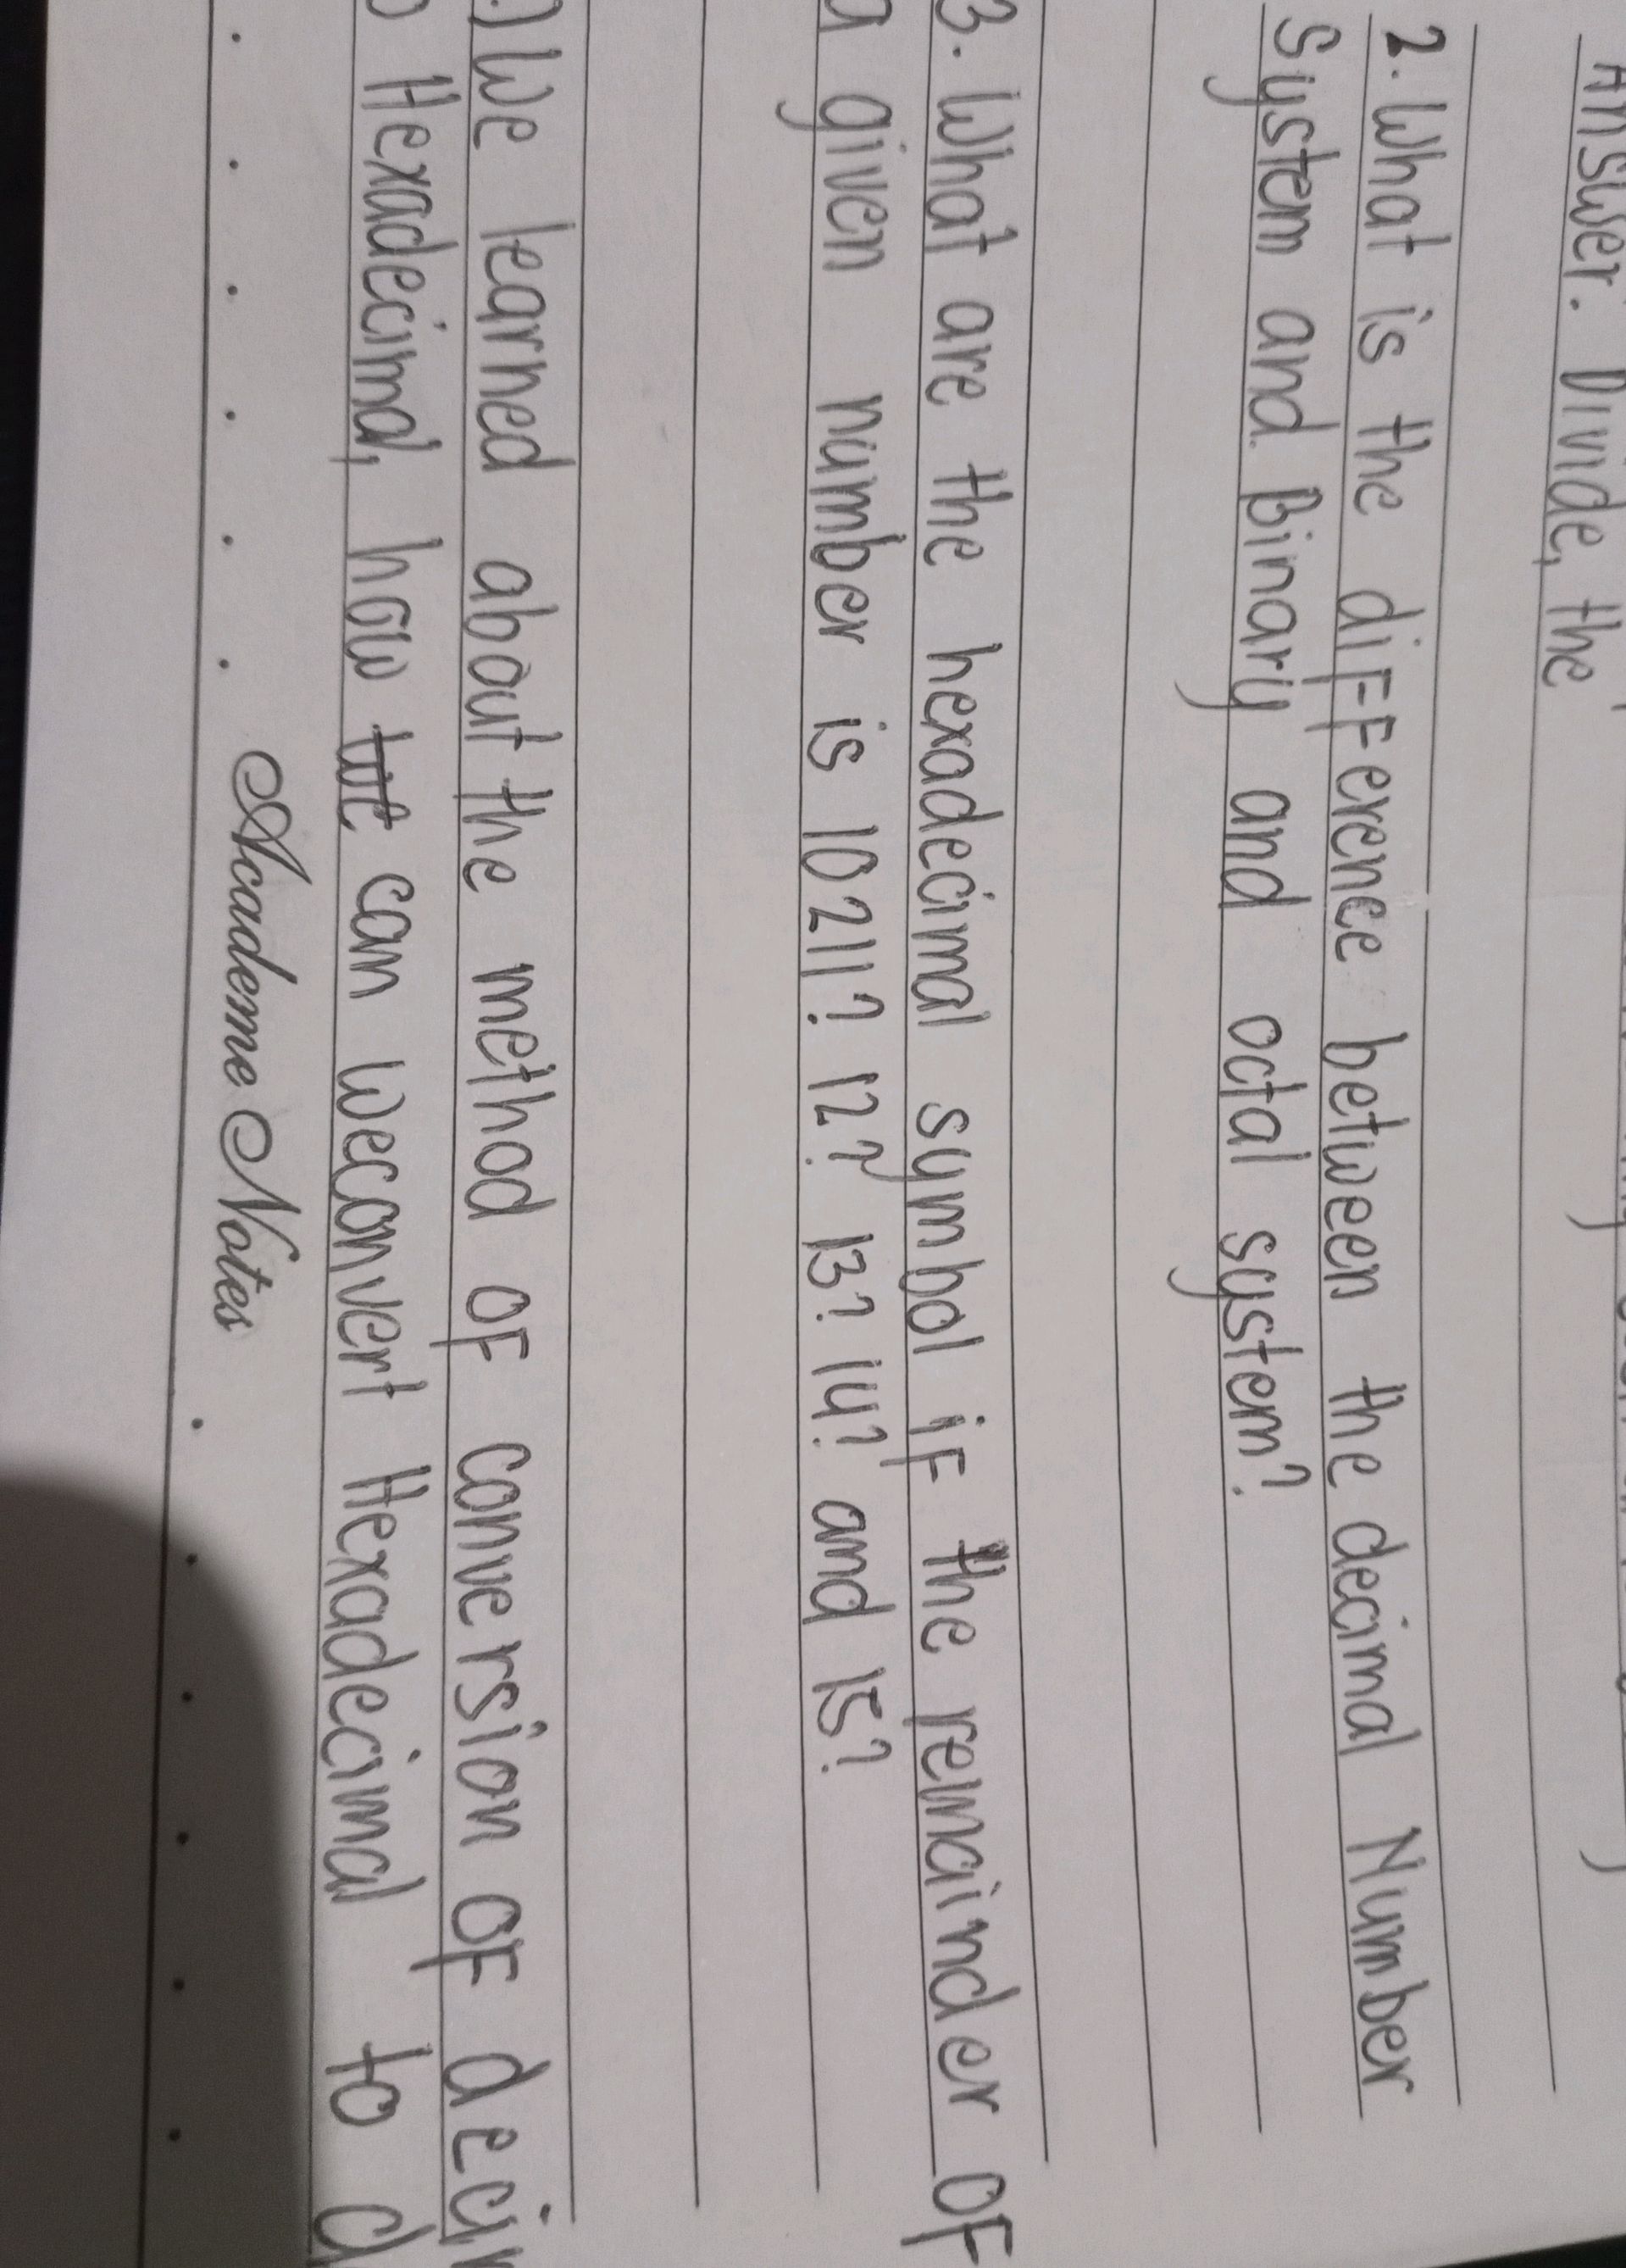 Answer: Divide, the
2. What is the difference between the decimal Number
System and Binary and octal system?
3. What are the hexadecimal symbol if the remainder of
a given number is 10211? 12? 13? 14? and 15?
.) We learned about the method of conversion of
Hexadecimal, how can weconvert Hexadecimal to
Academe Notes